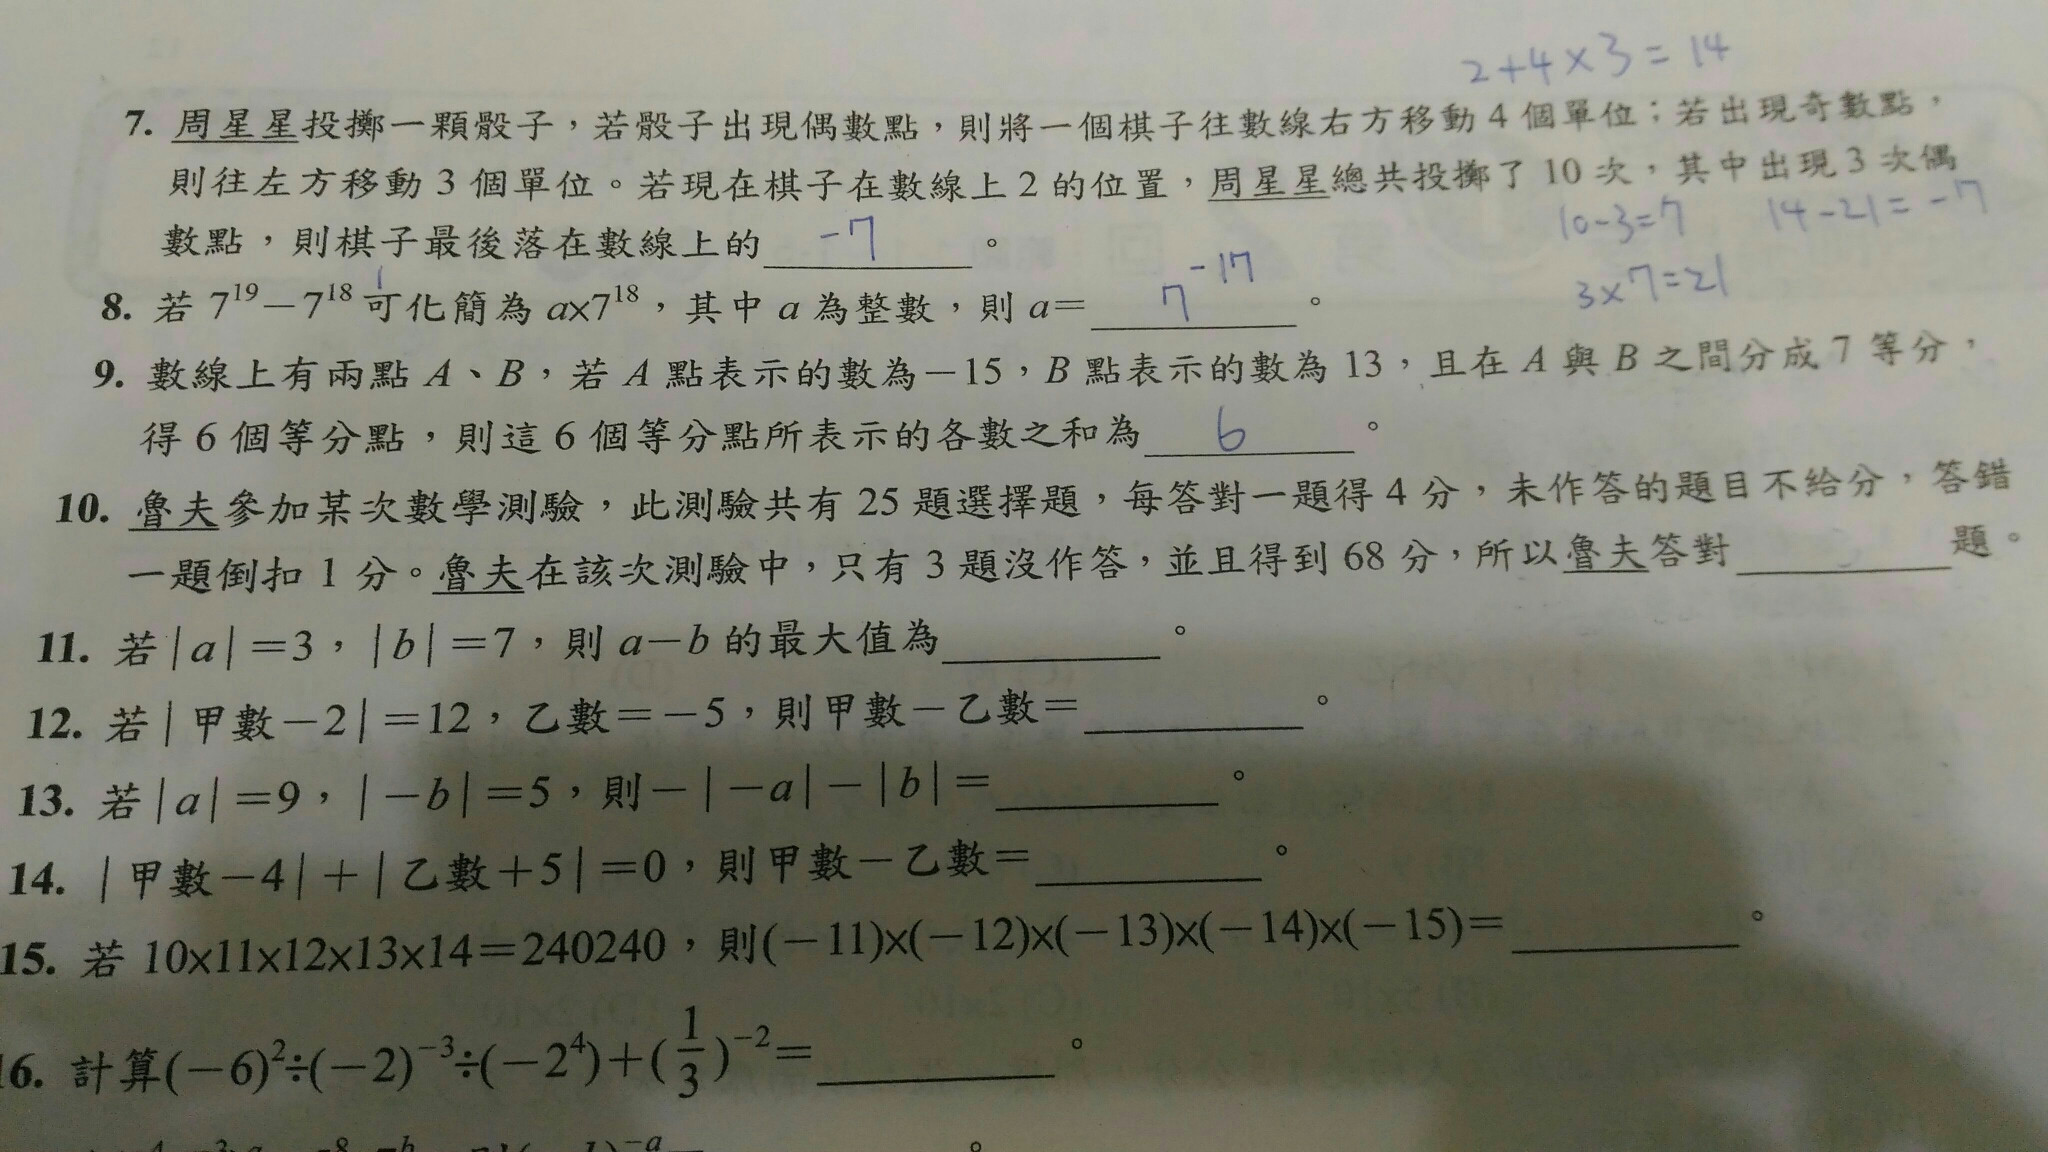 2+4×3=14
7. 周星星投擲一顆骰子，若骰子出現偶數點，則將一個棋子往數線右方移動4個單位；若出現奇數點，
則往左方移動3個單位。若現在棋子在數線上2的位置，周星星總共投擲了10次，其中出現3次偶
數點，則棋子最後落在數線上的 -7 。
10-3=7 14-21=-7
3×7=21
8. 若 7¹⁹－7¹⁸ 可化簡為 a×7¹⁸，其中 a 為整數，則 a＝ 7⁻¹⁷ 。
9. 數線上有兩點 A、B，若 A 點表示的數為－15，B 點表示的數為 13，且在 A 與 B 之間分成 7 等分，
得 6 個等分點，則這 6 個等分點所表示的各數之和為 6 。
10. 魯夫參加某次數學測驗，此測驗共有 25 題選擇題，每答對一題得 4 分，未作答的題目不給分，答錯
一題倒扣 1 分。魯夫在該次測驗中，只有 3 題沒作答，並且得到 68 分，所以魯夫答對＿＿＿題。
11. 若|a|＝3，|b|＝7，則 a－b 的最大值為＿＿＿。
12. 若|甲數－2|＝12，乙數＝－5，則甲數－乙數＝＿＿＿。
13. 若|a|＝9，|－b|＝5，則－|－a|－|b|＝＿＿＿。
14. |甲數－4|＋|乙數＋5|＝0，則甲數－乙數＝＿＿＿。
15. 若 10×11×12×13×14＝240240，則(－11)×(－12)×(－13)×(－14)×(－15)＝＿＿＿。
16. 計算(－6)²÷(－2)⁻³÷(－2⁴)＋(1/3)⁻²＝＿＿＿。